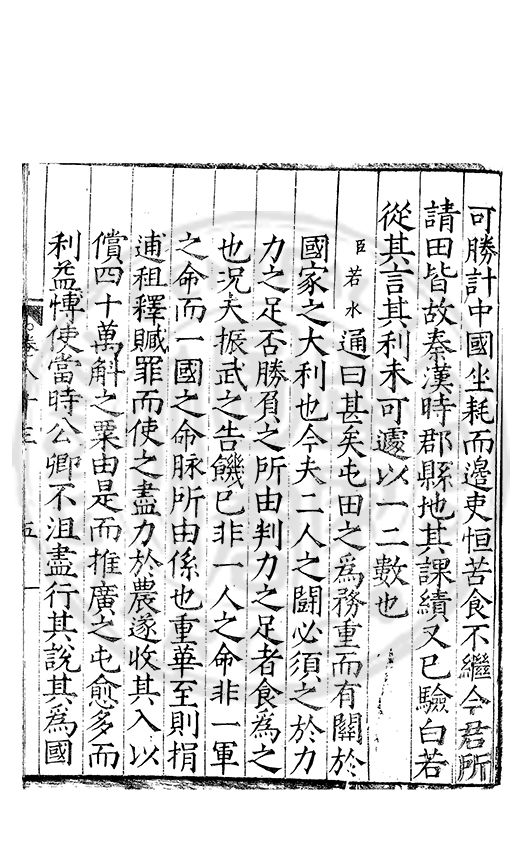 可勝計中國坐耗而邊吏恒苦食不繼今君所
請田皆故秦漢時郡縣地其課績又已驗白若
從其言其利未可遽以一二數也
臣若水通曰甚矣屯田之爲務重而有關於
國家之大利也今夫二人之鬪必須之於力
力之足否勝負之所由判力之足者食爲之
也況夫振武之告饑已非一人之命非一軍
之命而一國之命脉所由係也重華至則捐
逋租釋贓罪而使之盡力於農遂收其入以
償四十萬斛之粟由是而推廣之屯愈多而
利益愽使當時公卿不沮盡行其說其爲國
卷八十三
五